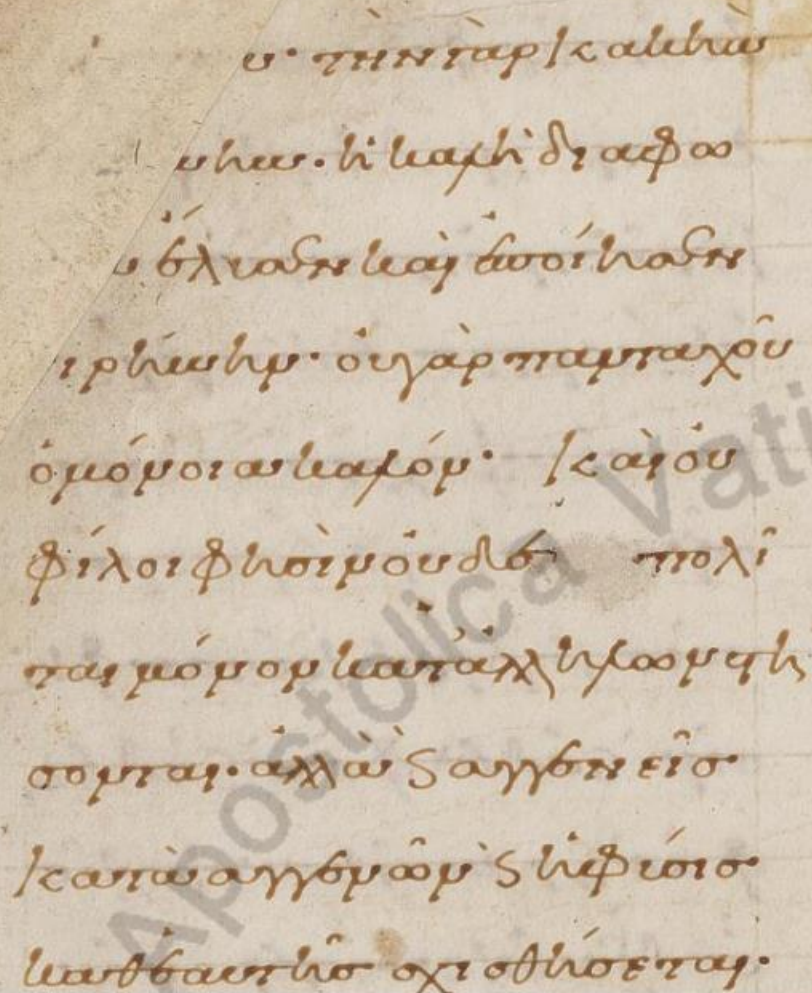 υ· τὴν γὰρ κακὴν
νην· ἡ καλὴ διαφω
ἔλυσεν καὶ ἐποίησεν
ιρήνην· οὐ γὰρ πανταχοῦ
ὁμόνοια καλόν· καὶ οὐ
φίλοι φησὶν οὐδὲ πολῖ
ται μόνον κατ ἀλλήλων στή
σονται· ἀλλὰ ϛ συγγενεῖς
κατὰ συγγενῶν ϛ ἡ φύσις
καθ ἑαυτῆς σχισθήσεται·
Apostolica Vati